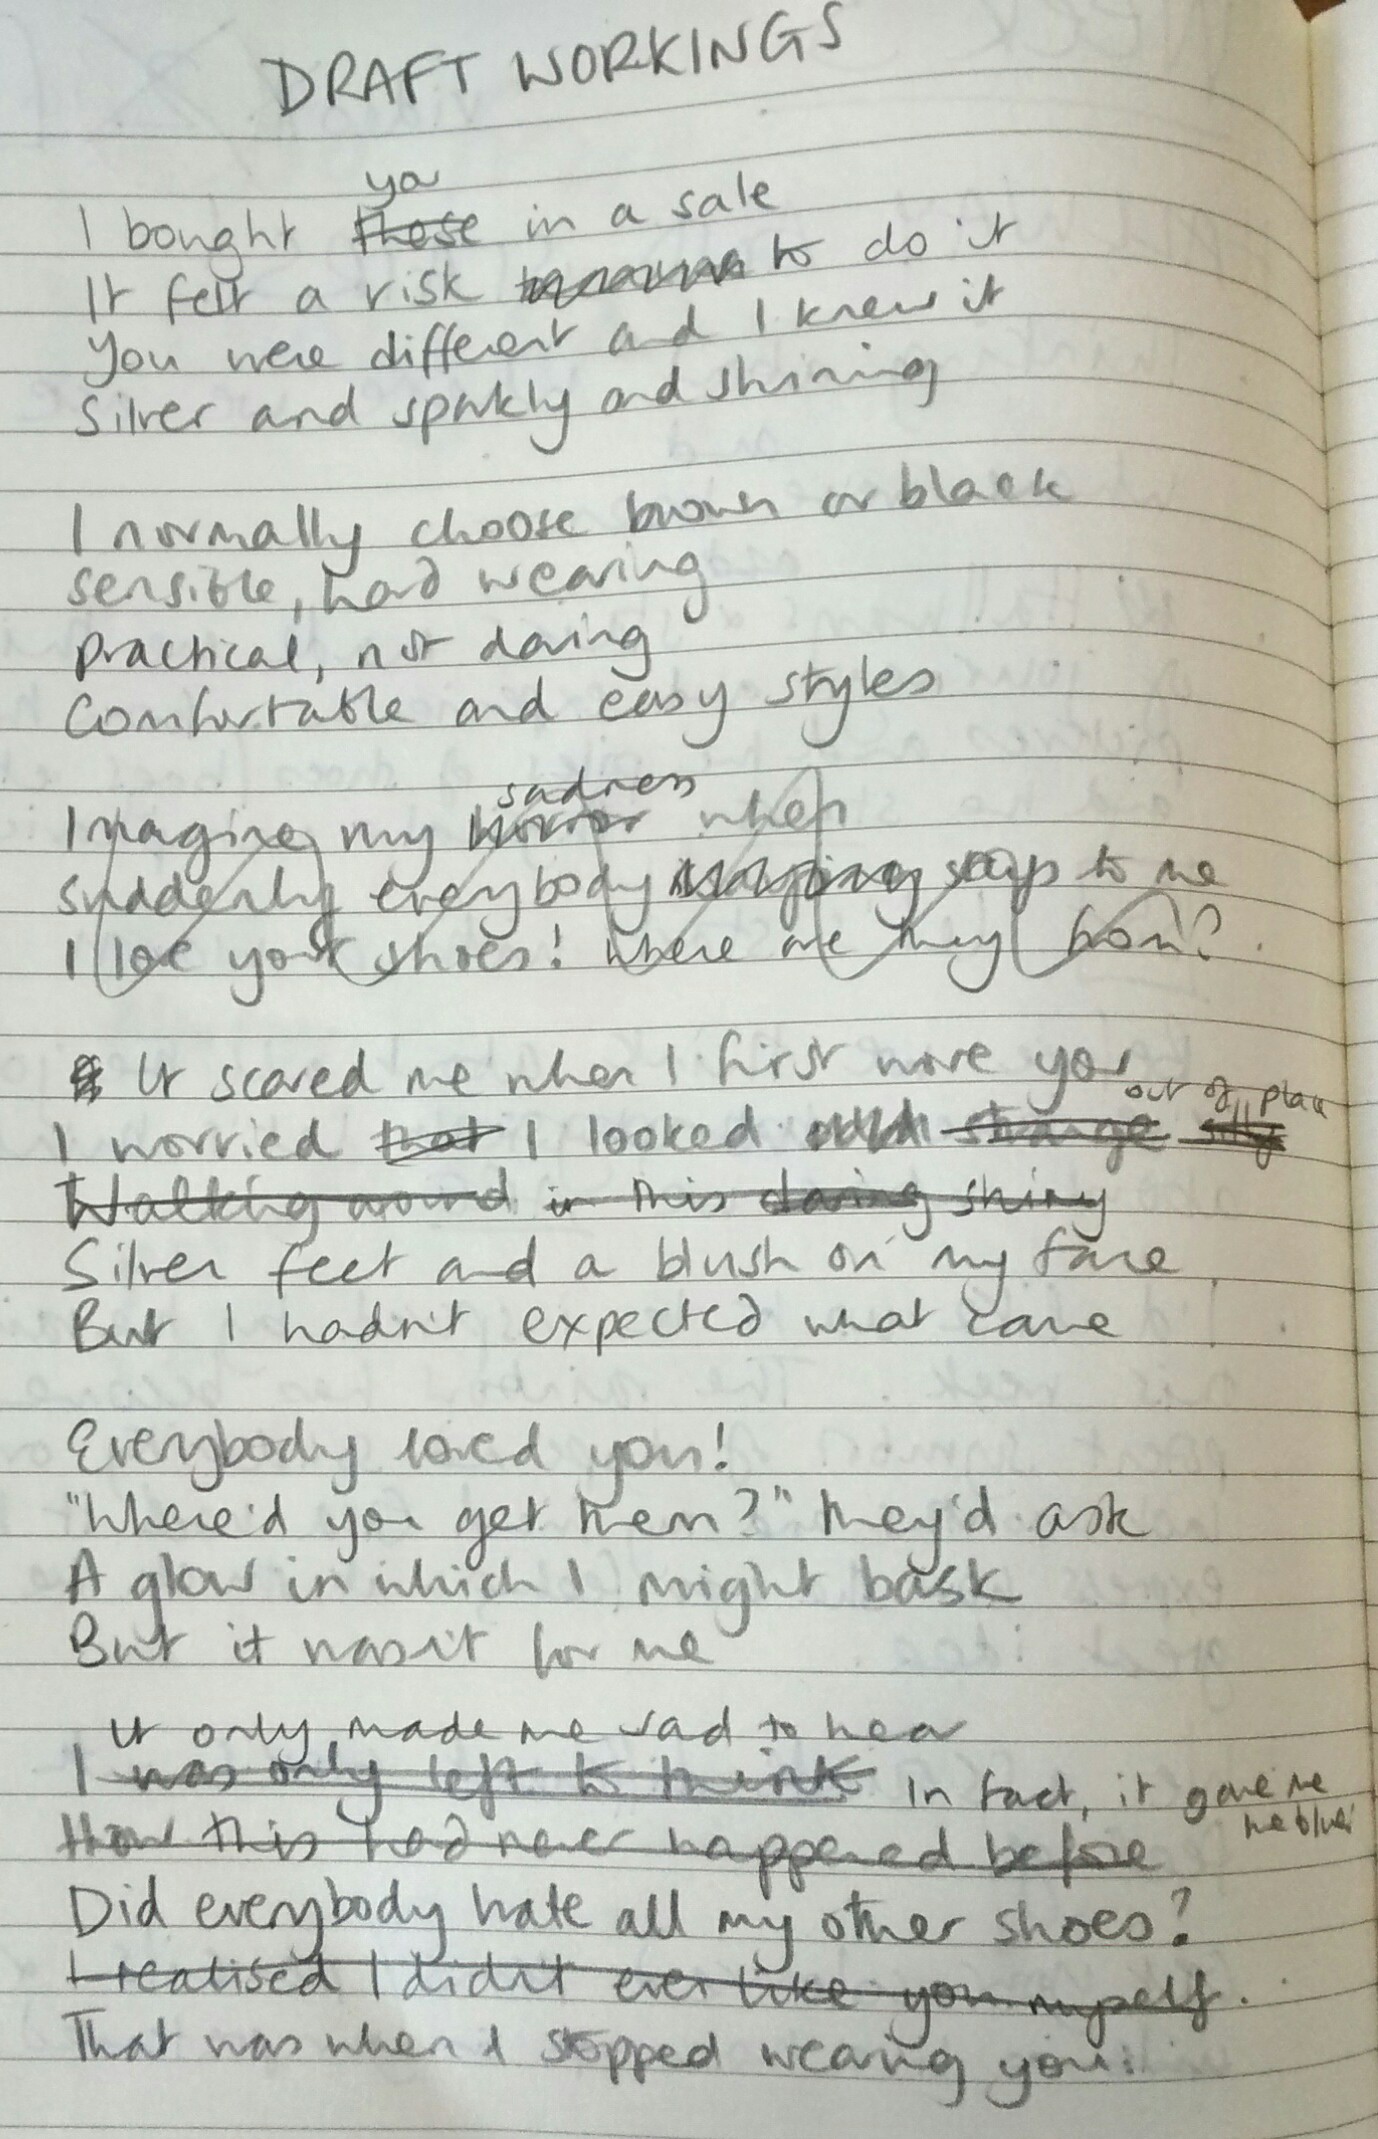 DRAFT WORKINGS
you
I bought these in a sale
It felt a risk to do it
You were different and I knew it
Silver and sparkly and shining
I normally choose brown or black
sensible, hard wearing
practical, not daring
Comfortable and easy styles
sadness
Imagine my horror when
suddenly everybody says to me
I love your shoes! Where are they from?
It scared me when I first wore you
out of place
I worried that I looked strange silly
Walking around in this daring shiny
Silver feet and a blush on my face
But I hadn't expected what came
Everybody loved you!
"Where'd you get them?" they'd ask
A glow in which I might bask
But it wasn't for me
It only made me sad to hear
I was only left to think In fact, it gave me
the blues
How this had never happened before
Did everybody hate all my other shoes?
I realised I didn't ever like you myself.
That was when I stopped wearing you.